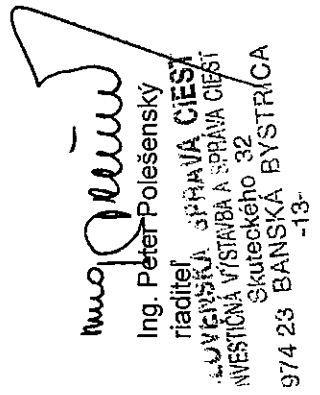 Ing. Peter Polešenský
riaditeľ
SPRÁVA CIEST
INVESTIČNÁ VÝSTAVBA A SPRÁVA CIEST
Skuteckého 32
974 23 BANSKÁ BYSTRICA
-13-